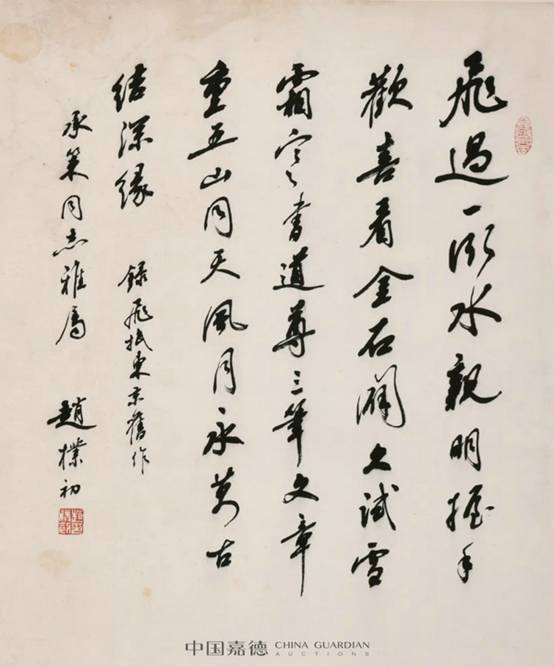 飛過一水親朋握手
歡喜看金石久試雪
霜寒書道尊三筆文章
重五山同天風月永萬古
結深緣
錄飛抵東京舊作
承策同志雅屬
趙樸初
中国嘉德 CHINA GUARDIAN
AUCTIONS